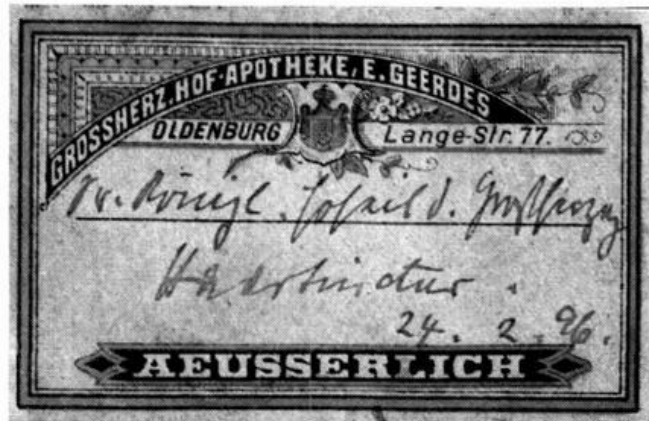 GROSSHERZ. HOF-APOTHEKE, E. GEERDES
OLDENBURG Lange-Str. 77.
Sr. Königl. Hoheit d. Großherzog
Haartinctur.
24. 2. 96.
AEUSSERLICH